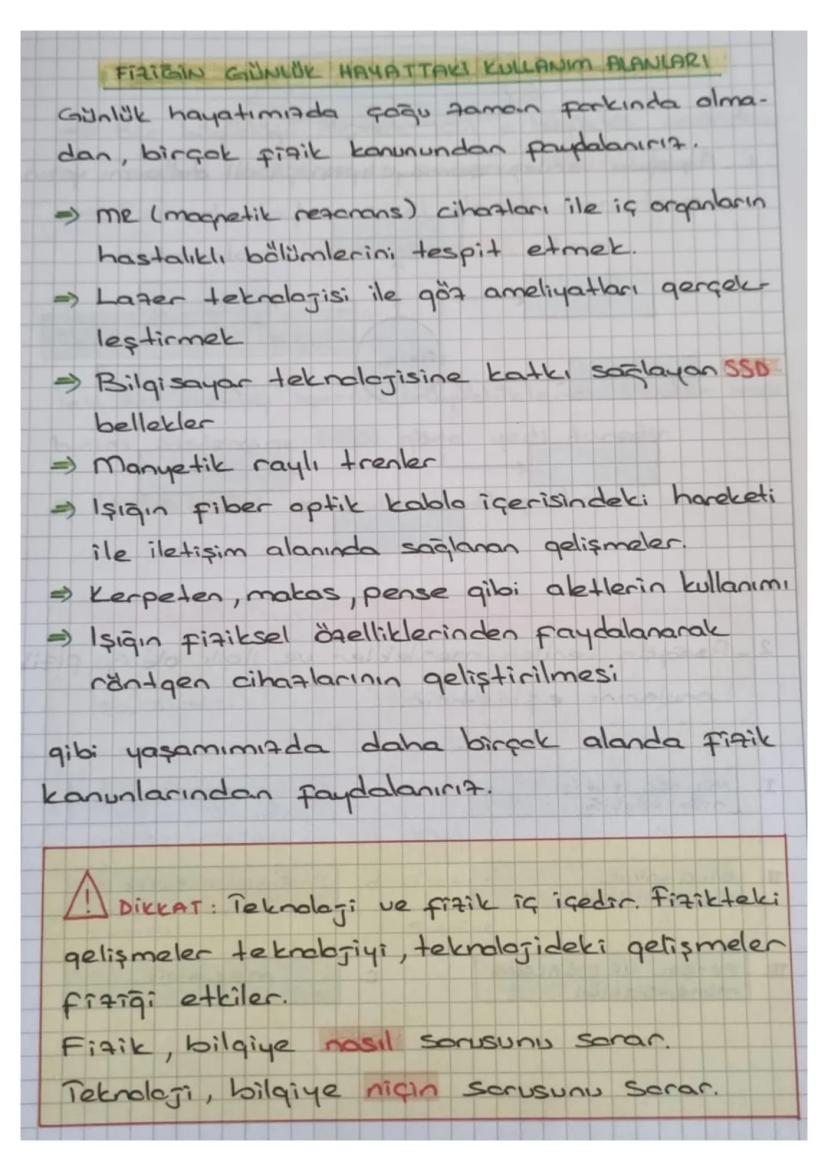 FİZİĞİN GÜNLÜK HAYATTAKİ KULLANIM ALANLARI
Günlük hayatımızda çoğu zaman farkında olma-
dan, birçok fizik kanunundan faydalanırız.
⇒ MR (magnetik rezonans) cihazları ile iç organların
hastalıklı bölümlerini tespit etmek.
⇒ Lazer teknolojisi ile göz ameliyatları gerçek-
leştirmek
⇒ Bilgisayar teknolojisine katkı sağlayan SSD
bellekler
⇒ Manyetik raylı trenler
⇒ Işığın fiber optik kablo içerisindeki hareketi
ile iletişim alanında sağlanan gelişmeler.
⇒ Kerpeten, makas, pense gibi aletlerin kullanımı
⇒ Işığın fiziksel özelliklerinden faydalanarak
röntgen cihazlarının geliştirilmesi
gibi yaşamımızda daha birçok alanda fizik
kanunlarından faydalanırız.
! DİKKAT: Teknoloji ve fizik iç içedir. Fizikteki
gelişmeler teknolojiyi, teknolojideki gelişmeler
fiziği etkiler.
Fizik, bilgiye nasıl sorusunu sorar.
Teknoloji, bilgiye niçin sorusunu sorar.